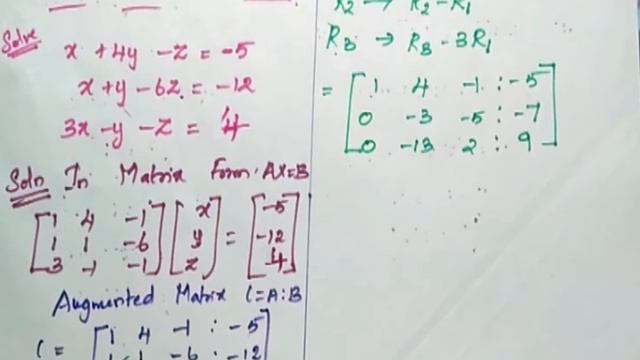 Solve
x + 4y - z = -5
x + y - 6z = -12
3x - y - z = 4
Soln In Matrix Form AX=B
[1 4 -1] [x] = [-5]
[1 1 -6] [y] = [-12]
[3 -1 -1] [z] = [4]
Augmented Matrix C=A:B
C = [1 4 -1 : -5]
-6 : -12
R2 → R2 - R1
R3 → R3 - 3R1
= [1 4 -1 : -5]
[0 -3 -5 : -7]
[0 -13 2 : 9]